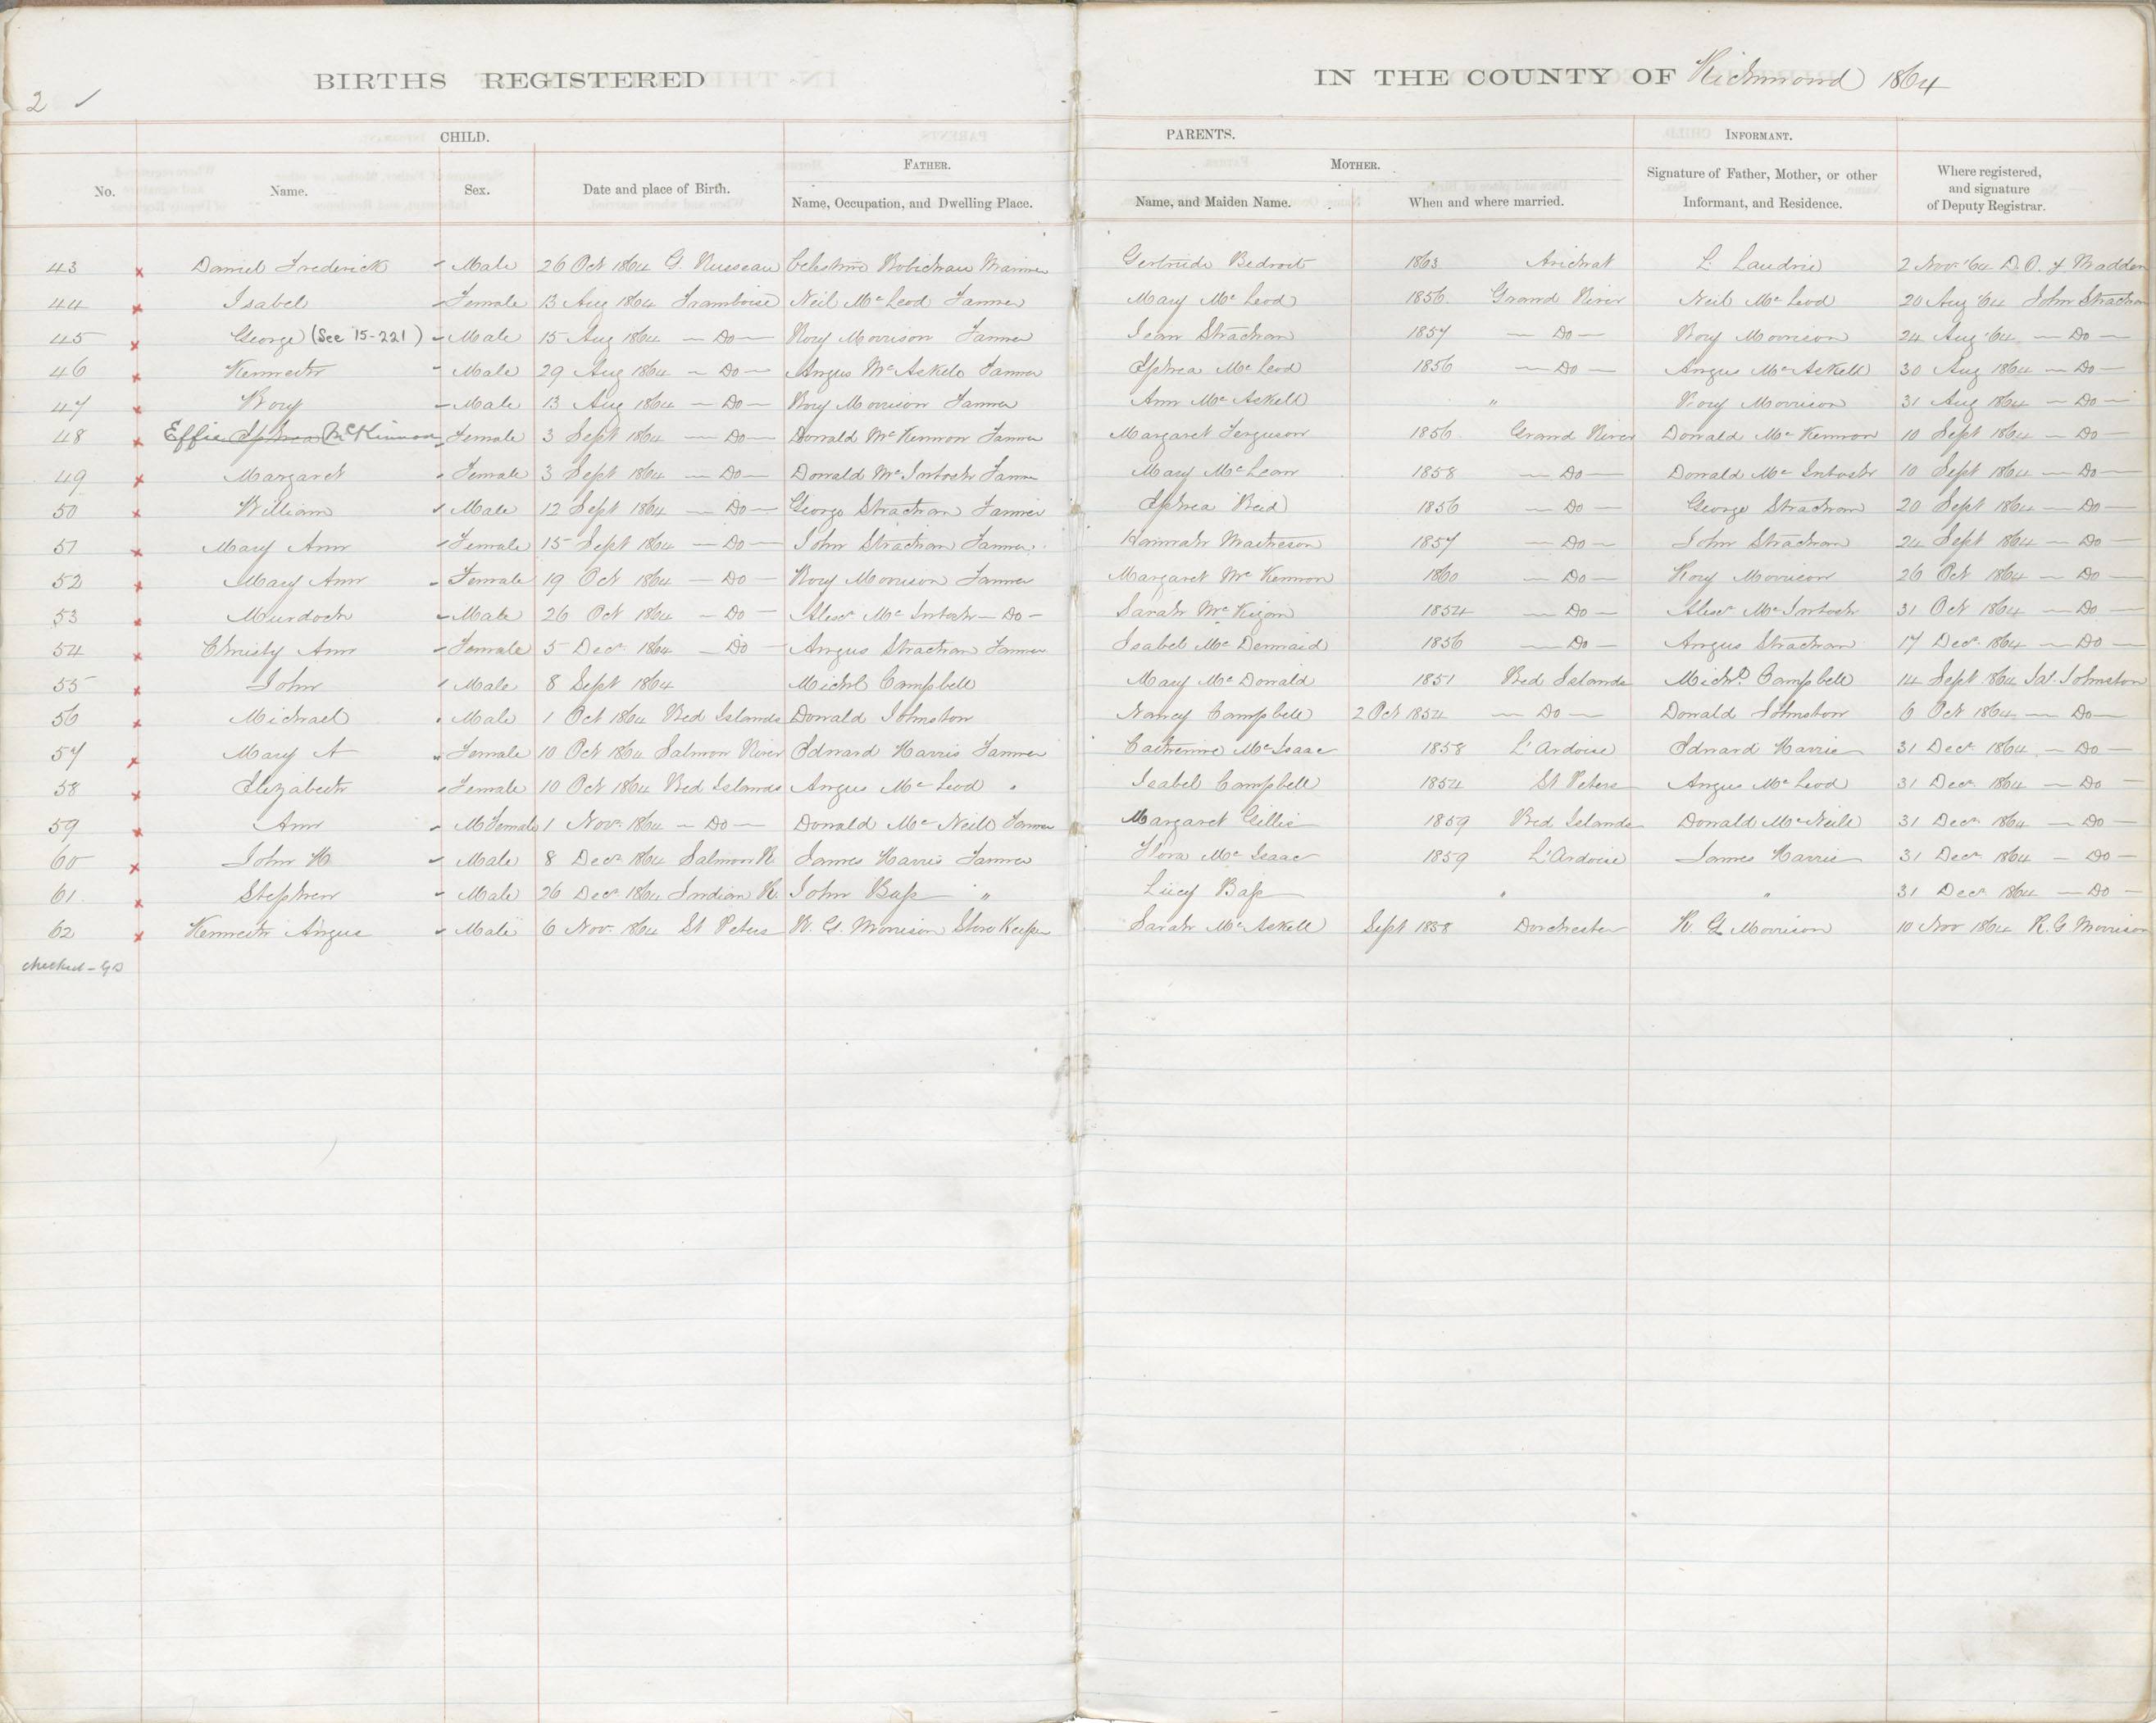 2 ✓
BIRTHS REGISTERED IN THE COUNTY OF Richmond 1864
CHILD. PARENTS. INFORMANT.
FATHER. MOTHER.
No. Name. Sex. Date and place of Birth. Name, Occupation, and Dwelling Place. Name, and Maiden Name. When and where married. Signature of Father, Mother, or other Informant, and Residence. Where registered, and signature of Deputy Registrar.
43 x Daniel Frederick Male 26 Oct 1864 Robichau Mariner Gertrude 1863 Arichat L. Landrie 2 Nov. '64 Madden
44 x Isabel Female 13 Aug 1864 Framboise Neil McLeod Farmer Mary McLeod 1856 Grand River Neil McLeod 20 Aug '64 John Strachan
45 x George (See 15-221) Male 15 Aug 1864 — Do — Rory Morrison Farmer Jean Strachan 1857 — Do — Rory Morrison 24 Aug '64 — Do —
46 x Kenneth Male 29 Aug 1864 — Do — Angus McAskill Farmer Ephrea McLeod 1856 — Do — Angus McAskill 30 Aug 1864 — Do —
47 x Rory Male 13 Aug 1864 — Do — Rory Morrison Farmer Ann McAskill " Rory Morrison 31 Aug 1864 — Do —
48 x Effie Ephrea McKinnon Female 3 Sept 1864 — Do — Donald McKennon Farmer Margaret Ferguson 1856 Grand River Donald McKennon 10 Sept 1864 — Do —
49 x Margaret Female 3 Sept 1864 — Do — Donald McIntosh Farmer Mary McLean 1858 — Do — Donald McIntosh 10 Sept 1864 — Do —
50 x William Male 12 Sept 1864 — Do — George Strachan Farmer Ephrea Reid 1856 — Do — George Strachan 20 Sept 1864 — Do —
51 x Mary Ann Female 15 Sept 1864 — Do — John Strachan Farmer Hannah Matheson 1857 — Do — John Strachan 24 Sept 1864 — Do —
52 x Mary Ann Female 19 Oct 1864 — Do — Rory Morrison Farmer Margaret McKennon 1860 — Do — Rory Morrison 26 Oct 1864 — Do —
53 x Murdoch Male 26 Oct 1864 — Do — Alexr McIntosh — Do — Sarah 1854 — Do — Alexr McIntosh 31 Oct 1864 — Do —
54 x Christy Ann Female 5 Decr 1864 — Do — Angus Strachan Farmer Isabel McDermaid 1856 — Do — Angus Strachan 17 Decr 1864 — Do —
55 x John Male 8 Sept 1864 Michl Campbell Mary McDonald 1851 Red Islands Michl Campbell 14 Sept 1864 Johnston
56 x Michael Male 1 Oct 1864 Red Islands Donald Johnston Nancy Campbell 2 Oct 1854 — Do — Donald Johnston 6 Oct 1864 — Do —
57 x Mary A Female 10 Oct 1864 Salmon River Edward Harris Farmer Catherine McIsaac 1858 L'Ardoise Edward Harris 31 Decr 1864 — Do —
58 x Elizabeth Female 10 Oct 1864 Red Islands Angus McLeod " Isabel Campbell 1854 St Peters Angus McLeod 31 Decr 1864 — Do —
59 x Ann Female 1 Novr 1864 — Do — Donald McNeill Farmer Margaret Gillis 1859 Red Islands Donald McNeill 31 Decr 1864 — Do —
60 x John H Male 8 Decr 1864 Salmon R. James Harris Farmer Flora McIsaac 1859 L'Ardoise James Harris 31 Decr 1864 — Do —
61 x Stephen Male 26 Decr 1864 Indian R. John Bass " Lucy Bass " " 31 Decr 1864 — Do —
62 x Kenneth Angus Male 6 Nov. 1864 St Peters R. G. Morrison Store Keeper Sarah McAskill Sept 1858 Dorchester R. G. Morrison 10 Nov 1864 R. G. Morrison
checked - GD